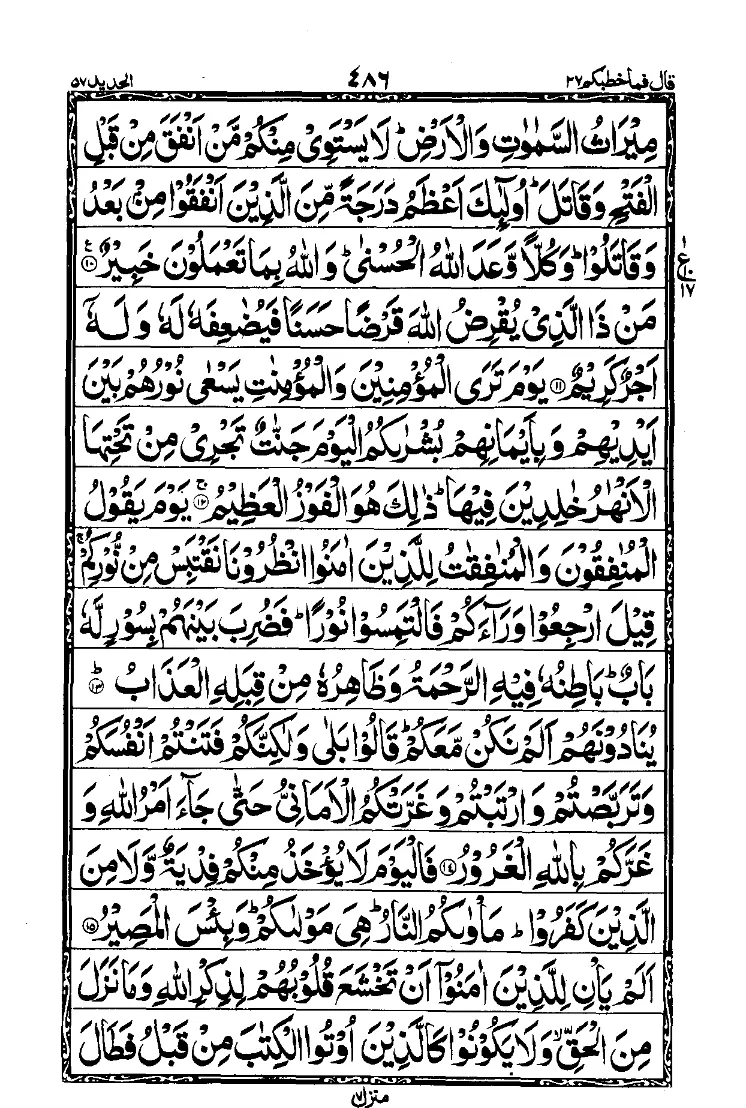 قال فما خطبكم ٢٧ ٤٨٦ الحديد ٥٧
مِيْرَاثُ السَّمٰوٰتِ وَالْاَرْضِ ؕ لَا يَسْتَوِيْ مِنْكُمْ مَّنْ اَنْفَقَ مِنْ قَبْلِ
الْفَتْحِ وَقَاتَلَ ؕ اُولٰٓئِكَ اَعْظَمُ دَرَجَةً مِّنَ الَّذِيْنَ اَنْفَقُوْا مِنْۢ بَعْدُ
وَقَاتَلُوْا ؕ وَكُلًّا وَّعَدَ اللّٰهُ الْحُسْنٰى ؕ وَاللّٰهُ بِمَا تَعْمَلُوْنَ خَبِيْرٌ ۧ ﴿١٠﴾
ع ١٠ ١٧
مَنْ ذَا الَّذِيْ يُقْرِضُ اللّٰهَ قَرْضًا حَسَنًا فَيُضٰعِفَهٗ لَهٗ وَلَهٗۤ
اَجْرٌ كَرِيْمٌ ﴿١١﴾ يَوْمَ تَرَى الْمُؤْمِنِيْنَ وَالْمُؤْمِنٰتِ يَسْعٰى نُوْرُهُمْ بَيْنَ
اَيْدِيْهِمْ وَبِاَيْمَانِهِمْ بُشْرٰىكُمُ الْيَوْمَ جَنّٰتٌ تَجْرِيْ مِنْ تَحْتِهَا
الْاَنْهٰرُ خٰلِدِيْنَ فِيْهَا ؕ ذٰلِكَ هُوَ الْفَوْزُ الْعَظِيْمُ ۚ ﴿١٢﴾ يَوْمَ يَقُوْلُ
الْمُنٰفِقُوْنَ وَالْمُنٰفِقٰتُ لِلَّذِيْنَ اٰمَنُوا انْظُرُوْنَا نَقْتَبِسْ مِنْ نُّوْرِكُمْ ۚ
قِيْلَ ارْجِعُوْا وَرَآءَكُمْ فَالْتَمِسُوْا نُوْرًا ؕ فَضُرِبَ بَيْنَهُمْ بِسُوْرٍ لَّهٗ
بَابٌ ؕ بَاطِنُهٗ فِيْهِ الرَّحْمَةُ وَظَاهِرُهٗ مِنْ قِبَلِهِ الْعَذَابُ ؕ ﴿١٣﴾
يُنَادُوْنَهُمْ اَلَمْ نَكُنْ مَّعَكُمْ ؕ قَالُوْا بَلٰى وَلٰكِنَّكُمْ فَتَنْتُمْ اَنْفُسَكُمْ
وَتَرَبَّصْتُمْ وَارْتَبْتُمْ وَغَرَّتْكُمُ الْاَمَانِيُّ حَتّٰى جَآءَ اَمْرُ اللّٰهِ وَ
غَرَّكُمْ بِاللّٰهِ الْغَرُوْرُ ﴿١٤﴾ فَالْيَوْمَ لَا يُؤْخَذُ مِنْكُمْ فِدْيَةٌ وَّلَا مِنَ
الَّذِيْنَ كَفَرُوْا ؕ مَاْوٰىكُمُ النَّارُ ؕ هِيَ مَوْلٰىكُمْ ؕ وَبِئْسَ الْمَصِيْرُ ﴿١٥﴾
اَلَمْ يَاْنِ لِلَّذِيْنَ اٰمَنُوْۤا اَنْ تَخْشَعَ قُلُوْبُهُمْ لِذِكْرِ اللّٰهِ وَمَا نَزَلَ
مِنَ الْحَقِّ ۙ وَلَا يَكُوْنُوْا كَالَّذِيْنَ اُوْتُوا الْكِتٰبَ مِنْ قَبْلُ فَطَالَ
منزل ٧